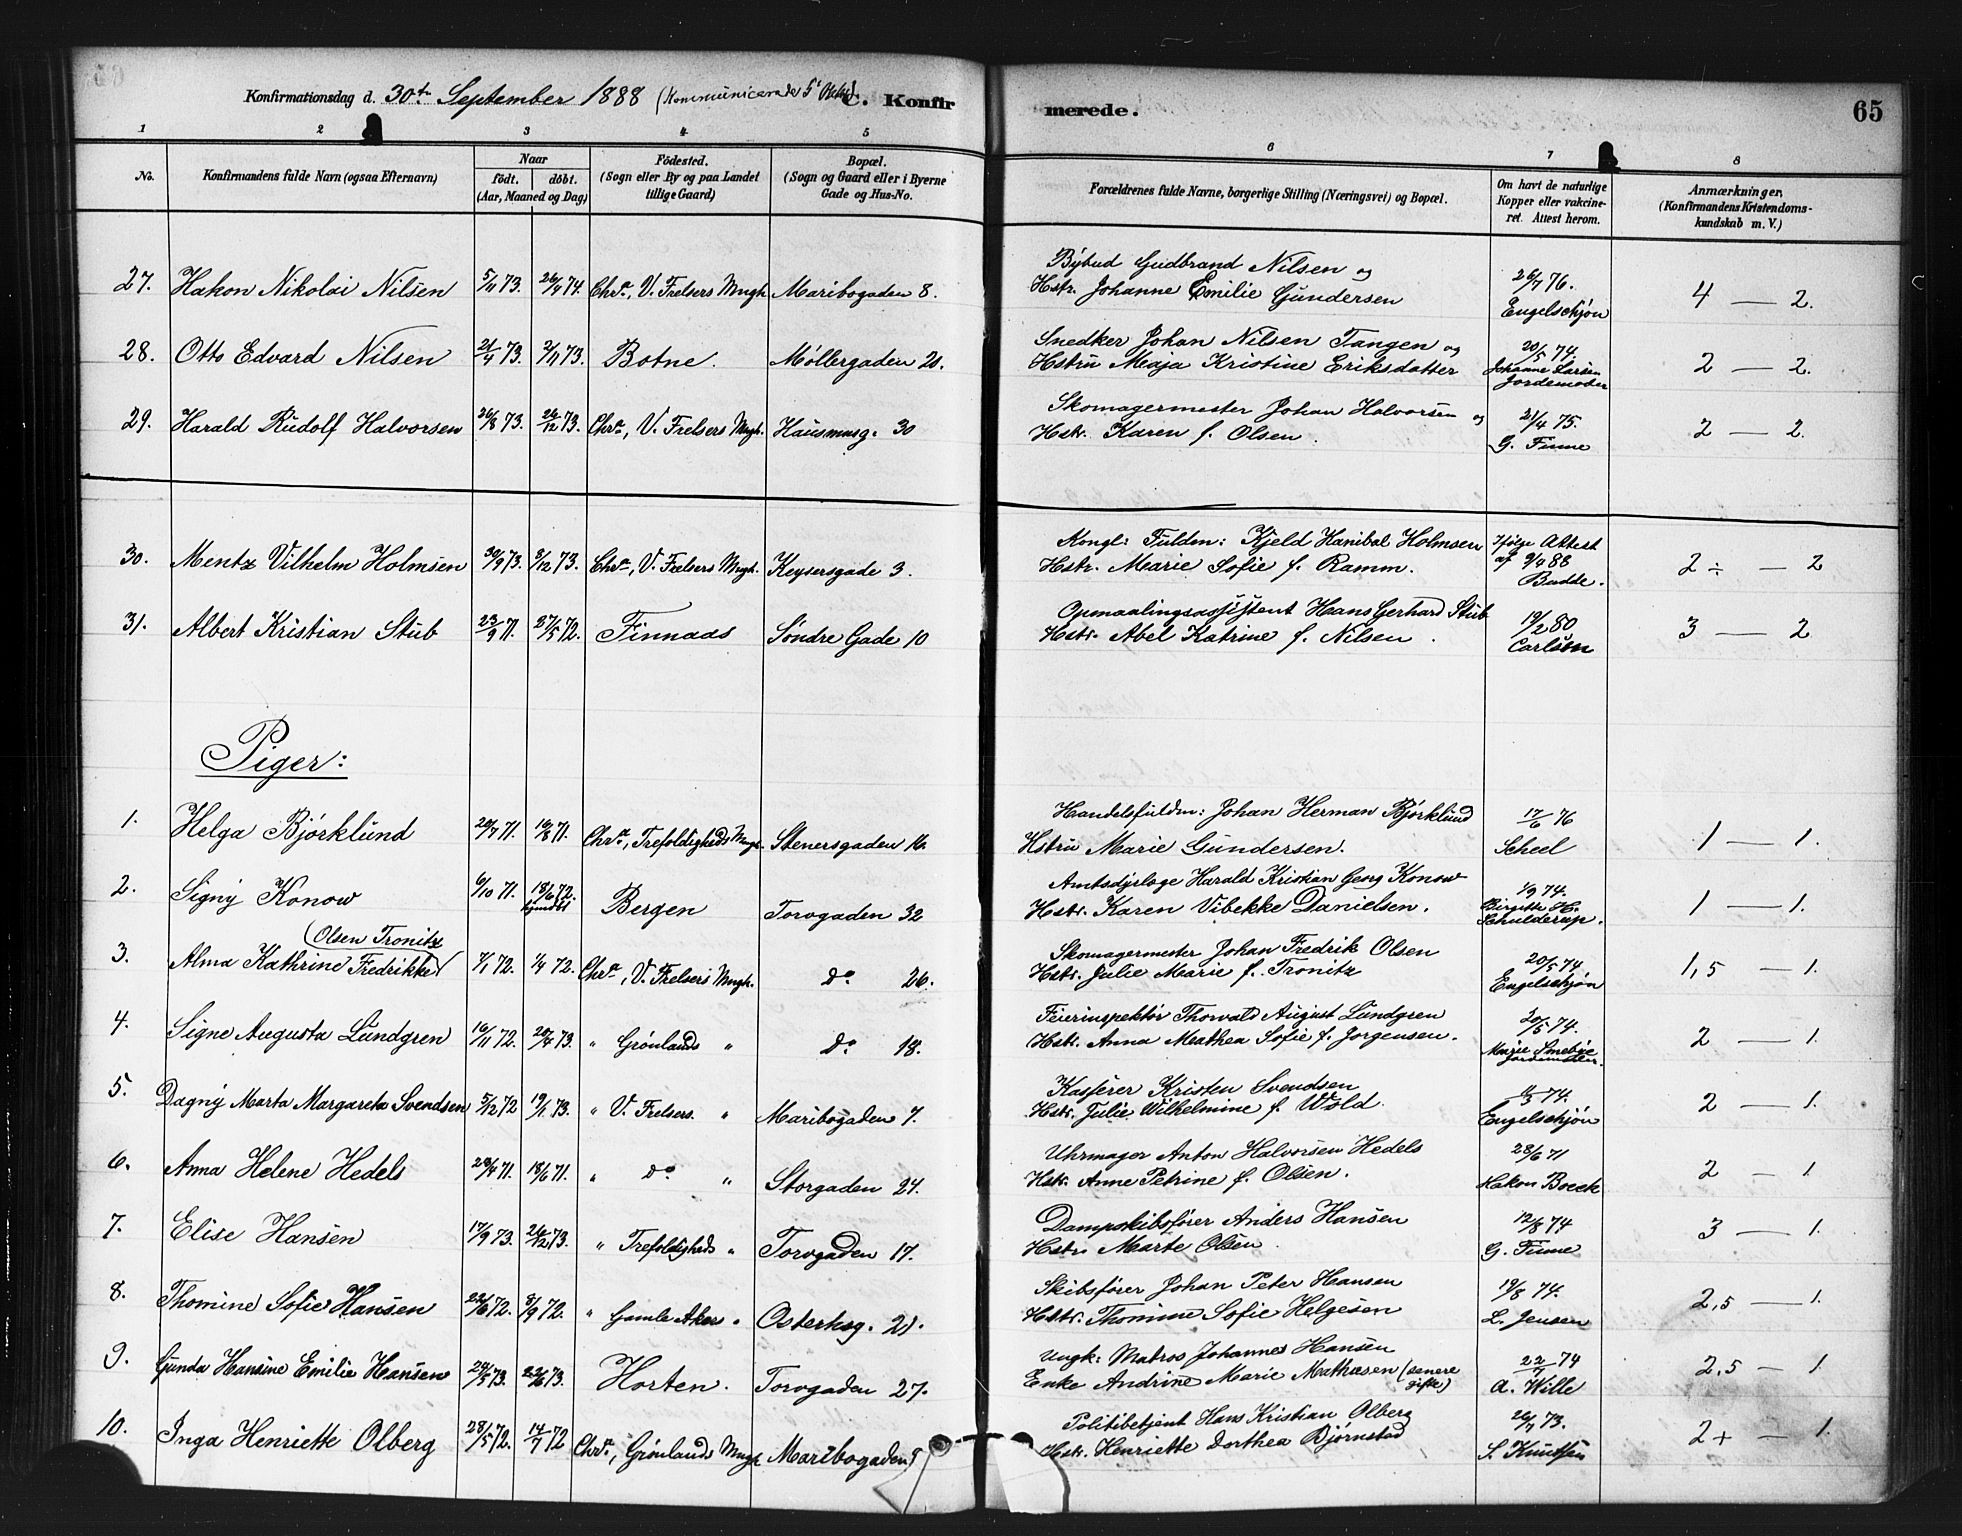 Konfirmationsdag d. 30te September 1888 (Kommunicerede 5' Oktbr) C. Konfirmerede. 65
1 2 3 4 5 6 7 8
No. Konfirmandens fulde Navn (ogsaa Efternavn) Naar födt. döbt. (Aar, Maaned og Dag) Födested. (Sogn eller By og paa Landet tillige Gaard) Bopæl. (Sogn og Gaard eller i Byerne Gade og Hus-No. Forældrenes fulde Navne, borgerlige Stilling (Næringsvei) og Bopæl. Om havt de naturlige Kopper eller vakcineret. Attest herom. Anmærkninger, (Konfirmandens Kristendomskundskab m. V.)
27. Hakon Nikolai Nilsen 5/11 73. 26/4 74. Chra., V. Frelsers Mngh. Maribogaden 8. Bybud Gudbrand Nilsen og Hstr. Johanne Emilie Gundersen 26/7 76. Engelschjøn 4 — 2.
28. Otto Edvard Nilsen 21/4 73. 2/11 73. Botne. Møllergaden 20. Snedker Johan Nilsen Tangen og Hstru Maja Kristine Eriksdatter 20/5 74. Johanne Larsen Jordemoder 2 — 2.
29. Harald Rudolf Halvorsen 26/8 73. 26/12 73. Chra., V. Frelsers Mngh. Hausmnsg. 30 Skomagermester Johan Halvorsen og Hstr. Karen f. Olsen. 21/4 75. G. Finne 2 — 2.
30. Mentz Vilhelm Holmsen 30/9 73. 8/12 73. Chra., V. Frelsers Mngh. Keysersgade 3. Kongl: Fuldm: Kjeld Hanibal Holmsen Hstr. Marie Sofie f. Ramm. Ifølge Attest af 9/4 88 Budde. 2 ÷ — 2
31. Albert Kristian Stub 23/9 71. 27/5 72. Finnaas Søndre Gade 10 Opmaalingsassistent Hans Gerhard Stub Hstr. Abel Katrine f. Nilsen. 19/2 80 Carlsen 3 — 2
Piger:
1. Helga Bjórklund 20/7 71. 16/8 71. Chra., Trefoldigheds Mngh. Stenersgaden 16. Handelsfuldm: Johan Herman Bjórklund Hstru Marie Gundersen. 17/6 76 Scheel 1 — 1.
2. Signy Konow 6/10 71. 18/6 72. hjmdbt Bergen Torvgaden 32 Amtsdyrlæge Harald Kristian Georg Konow Hstr. Karen Vibekke Danielsen. 1/9 74. Birgitte H. Schulderup. 1 — 1.
3. Alma Kathrine Fredrikke (Olsen Tronitz) 7/1 72. 1/4 72. Chra., V. Frelsers Mngh. Do 26. Skomagermester Johan Fredrik Olsen Hstr. Julie Marie f. Tronitz 20/5 74. Engelschjøn 1,5 — 1.
4. Signe Augusta Lundgren 16/11 72. 20/4 73. " Grønlands " Do 18. Feierinspektør Thorvald August Lundgren Hstr. Anna Mathea Sofie f. Jorgensen. 20/5 74. Marie Smebye Jordemoder. 2 — 1.
5. Dagny Marta Margareta Svendsen 5/12 72 19/1 73. " V. Frelsers. " Maribogaden 7. Kasserer Kristen Svendsen Hstr. Julie Wilhelmine f. Wold. 74. Engelschjøn 2 — 1.
6. Anna Helene Hedels 20/4 71. 18/6 71. " Do " Storgaden 24. Uhrmager Anton Halvorsen Hedels Hstr. Anne Petrine f. Olsen. 28/6 71 Hakon Boeck 2 — 1.
7. Elise Hansen 17/9 73. 26/12 73. " Trefoldigheds " Torvgaden 17. Dampskibsfører Anders Hansen Hstru Marte Olsen. 12/8 74 G. Finne 3 — 1.
8. Thomine Sofie Hansen 22/6 72. 8/9 72. " Gamle Akers " Osterhsg. 21. Skibsfører Johan Peter Hansen Hstr. Thomine Sofie Helgesen 19/8 74. L. Jensen 2,5 — 1.
9. Gunda Hansine Emilie Hansen 24/5 73. 22/6 73. Horten. Torvgaden 27. Ungk: Matros Johannes Hansen Enke Andrine Marie Mathæsen (senere gifte) 22/7 74 A. Wille 2,5 — 1
10. Inga Henriette Olberg 28/5 72. 14/7 72 Chra., Grønlands Mngh Maribogaden 5 Politibetjent Hans Kristian Olberg Hstr. Henriette Dorthea Bjørnstad 26/7 73. S. Knutsen 2+ — 1.